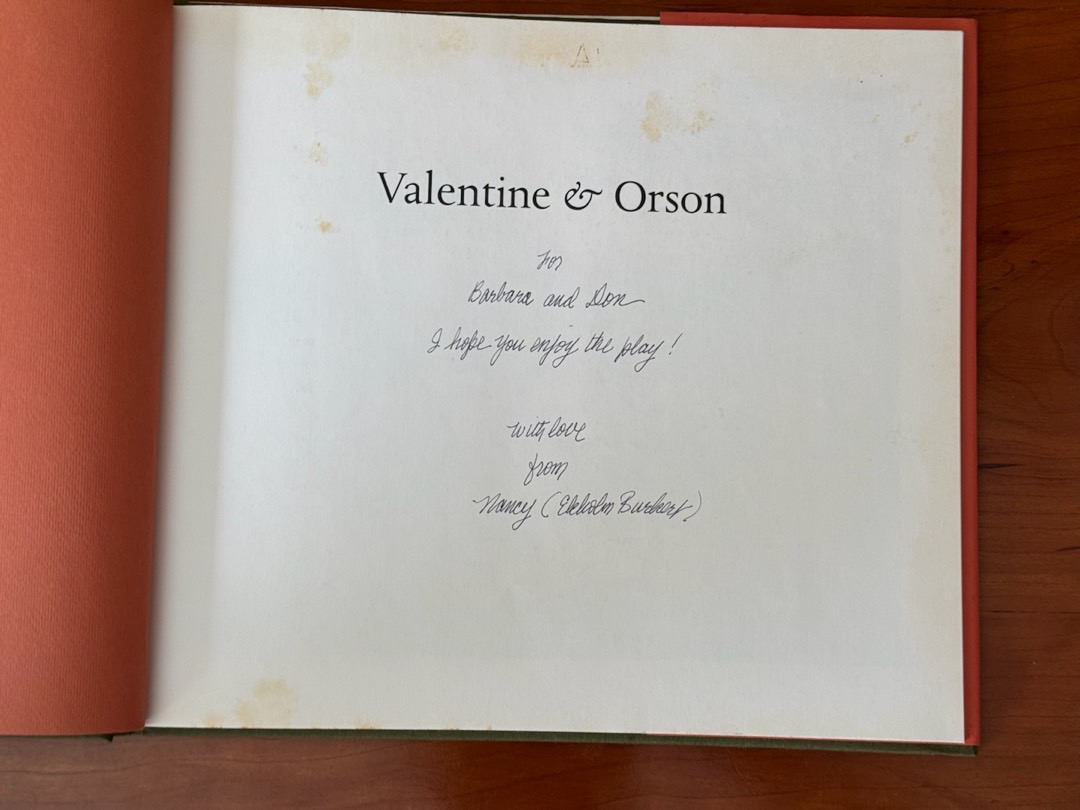 Valentine & Orson
For
Barbara and Don
I hope you enjoy the play!
with love
from
Nancy (Ekholm Burkert)